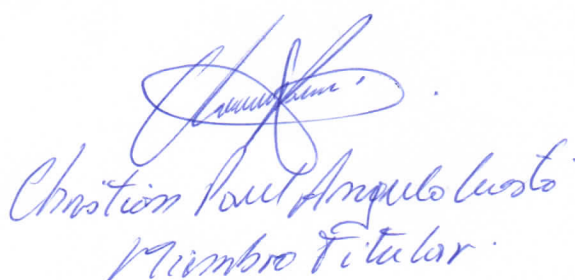 Christian Paul Angulo
Miembro Titular.